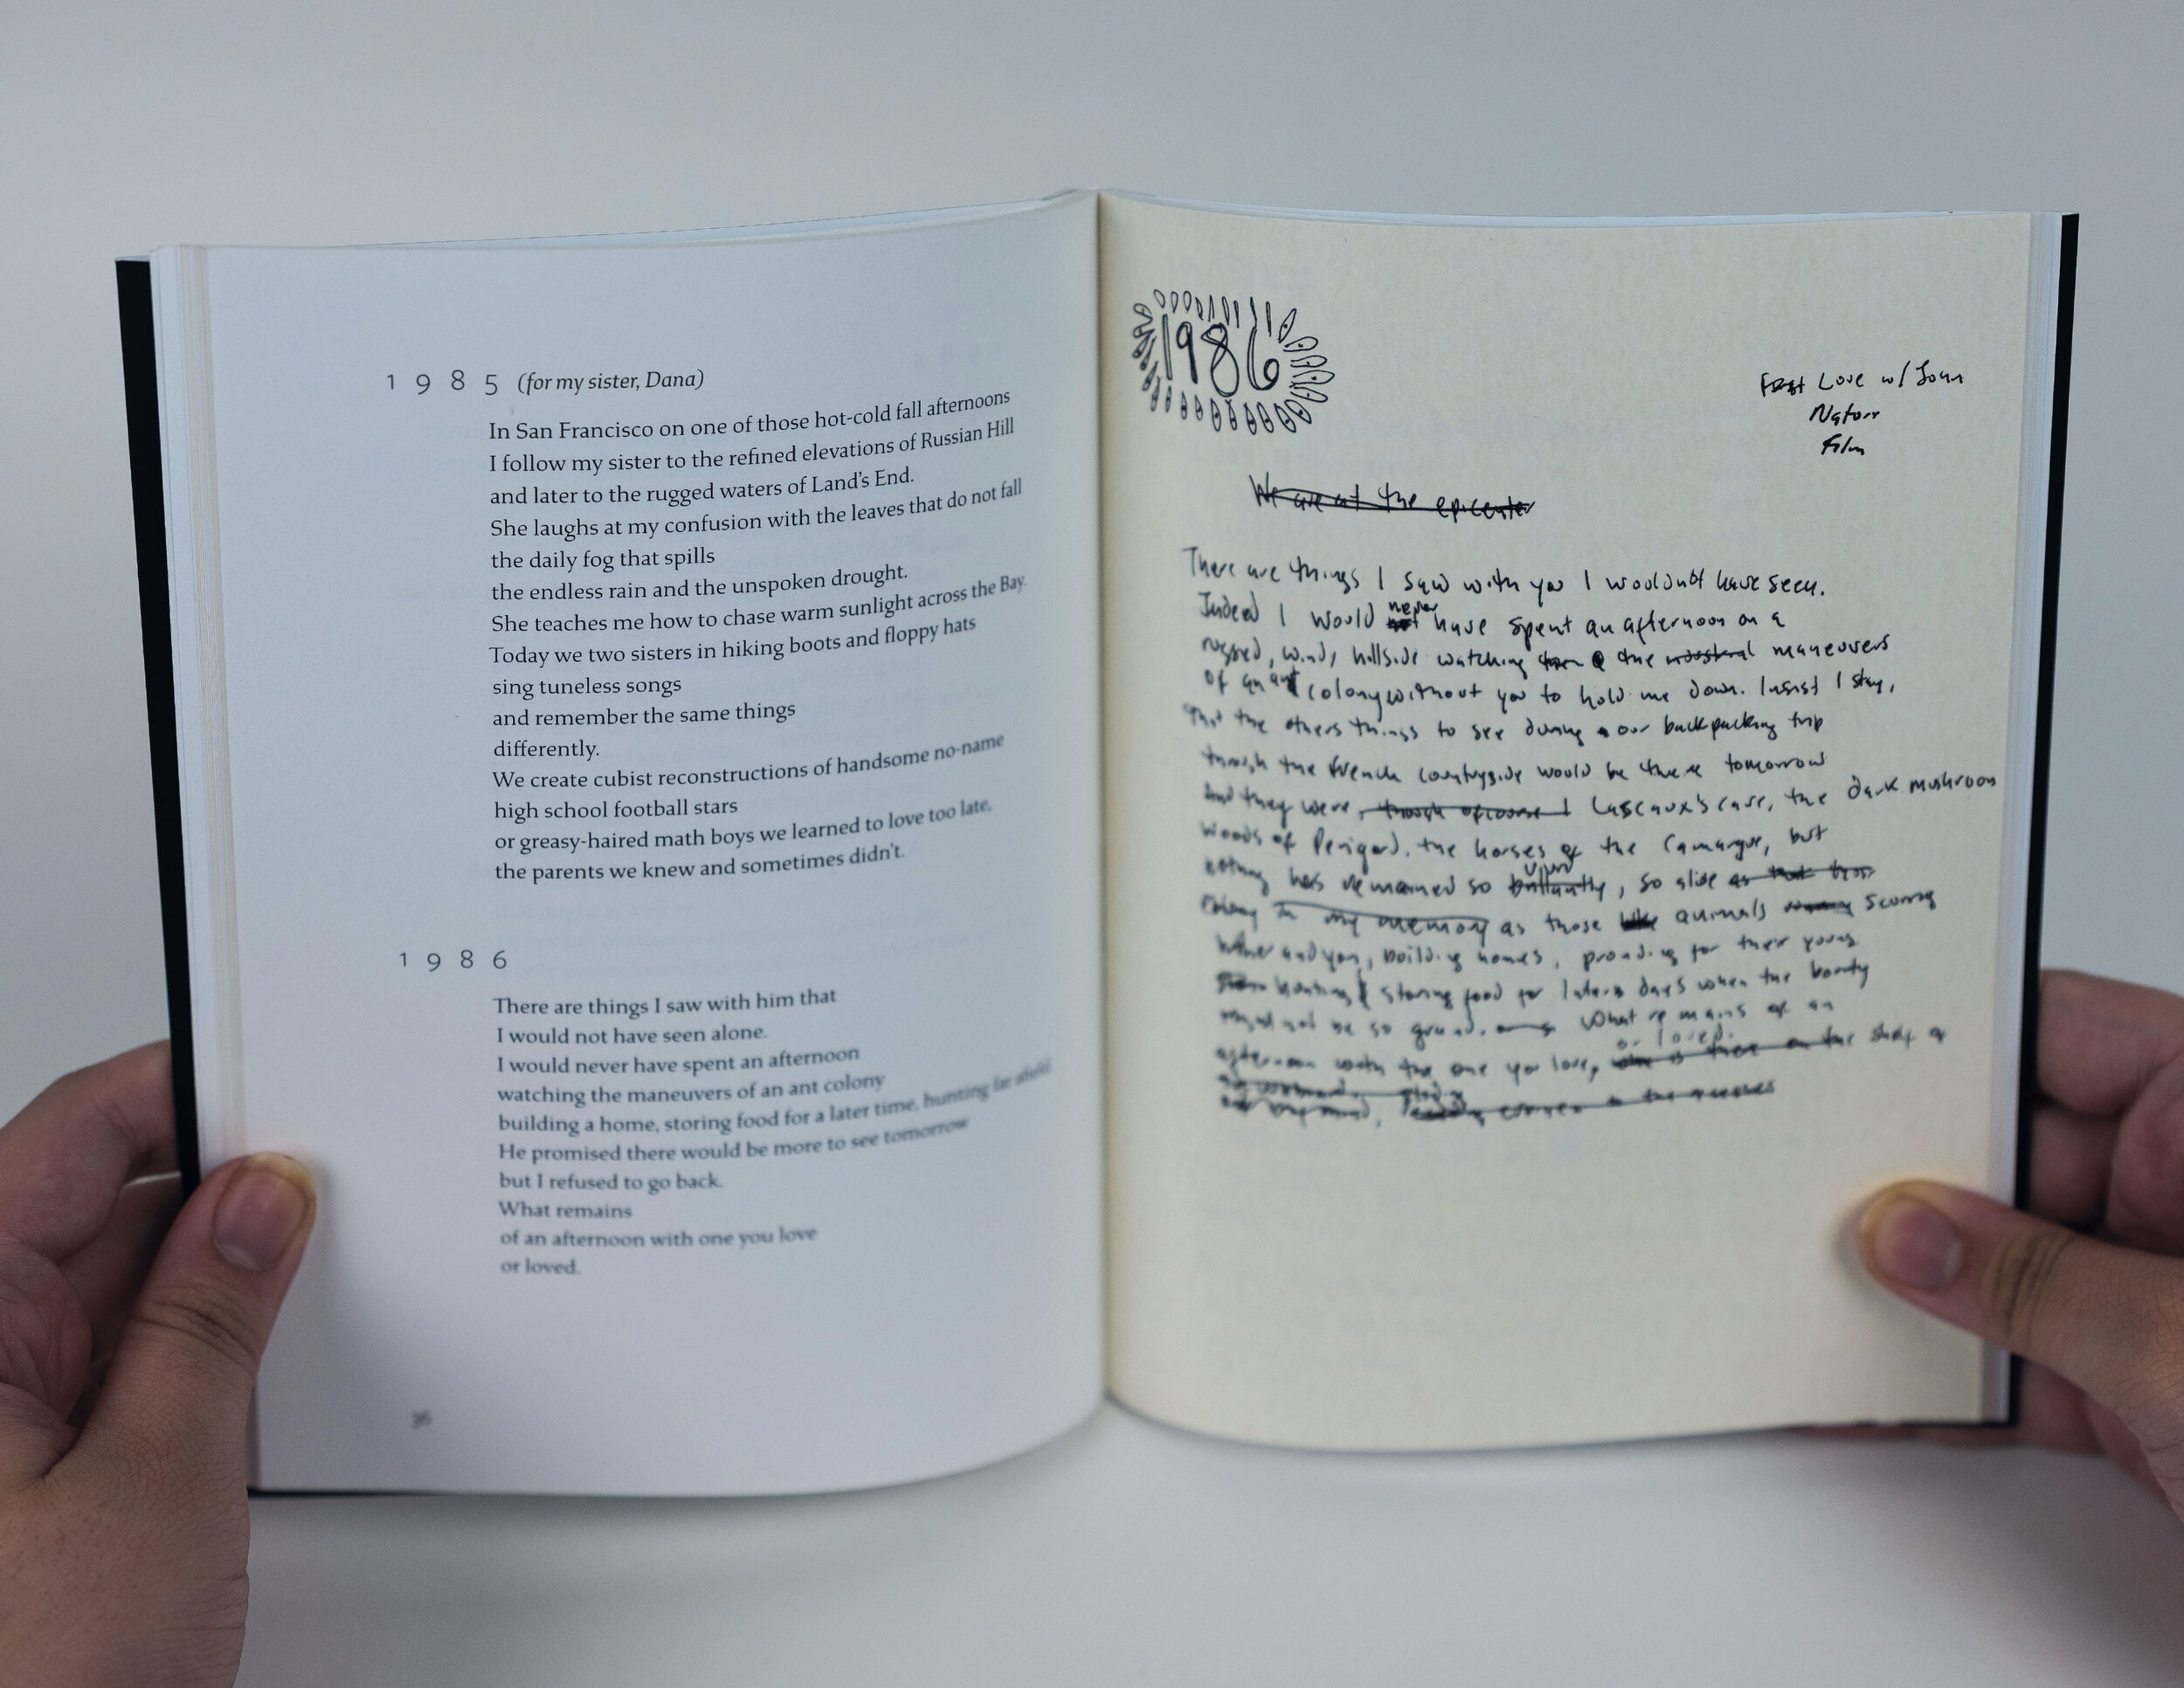 1985 (for my sister, Dana)
In San Francisco on one of those hot-cold fall afternoons
I follow my sister to the refined elevations of Russian Hill
and later to the rugged waters of Land's End.
She laughs at my confusion with the leaves that do not fall
the daily fog that spills
the endless rain and the unspoken drought.
She teaches me how to chase warm sunlight across the Bay.
Today we two sisters in hiking boots and floppy hats
sing tuneless songs
and remember the same things
differently.
We create cubist reconstructions of handsome no-name
high school football stars
or greasy-haired math boys we learned to love too late,
the parents we knew and sometimes didn't.
1986
There are things I saw with him that
I would not have seen alone.
I would never have spent an afternoon
watching the maneuvers of an ant colony
building a home, storing food for a later time, hunting far afield.
He promised there would be more to see tomorrow
but I refused to go back.
What remains
of an afternoon with one you love
or loved.
36
1986
Love w/
Film
We are at the epicenter
There are things I saw with you I wouldn't have seen.
Indeed I would never have spent an afternoon on a
rugged, windy hillside watching the maneuvers
of an ant colony without you to hold me down. Insist I stay,
that the others things to see during our backpacking trip
through the French countryside would be there tomorrow
And they were, though of course I Lascaux's cave, the dark mushroom
woods of Perigord, the horses of the Camargue, but
nothing has remained so brilliantly vivid, so alive as that
colony in my memory as those animals
hither and yon, building homes, providing for their young
hunting storing food for later days when the bounty
might not be so grand. What remains of an
afternoon with the one you love, or loved. the shelf of